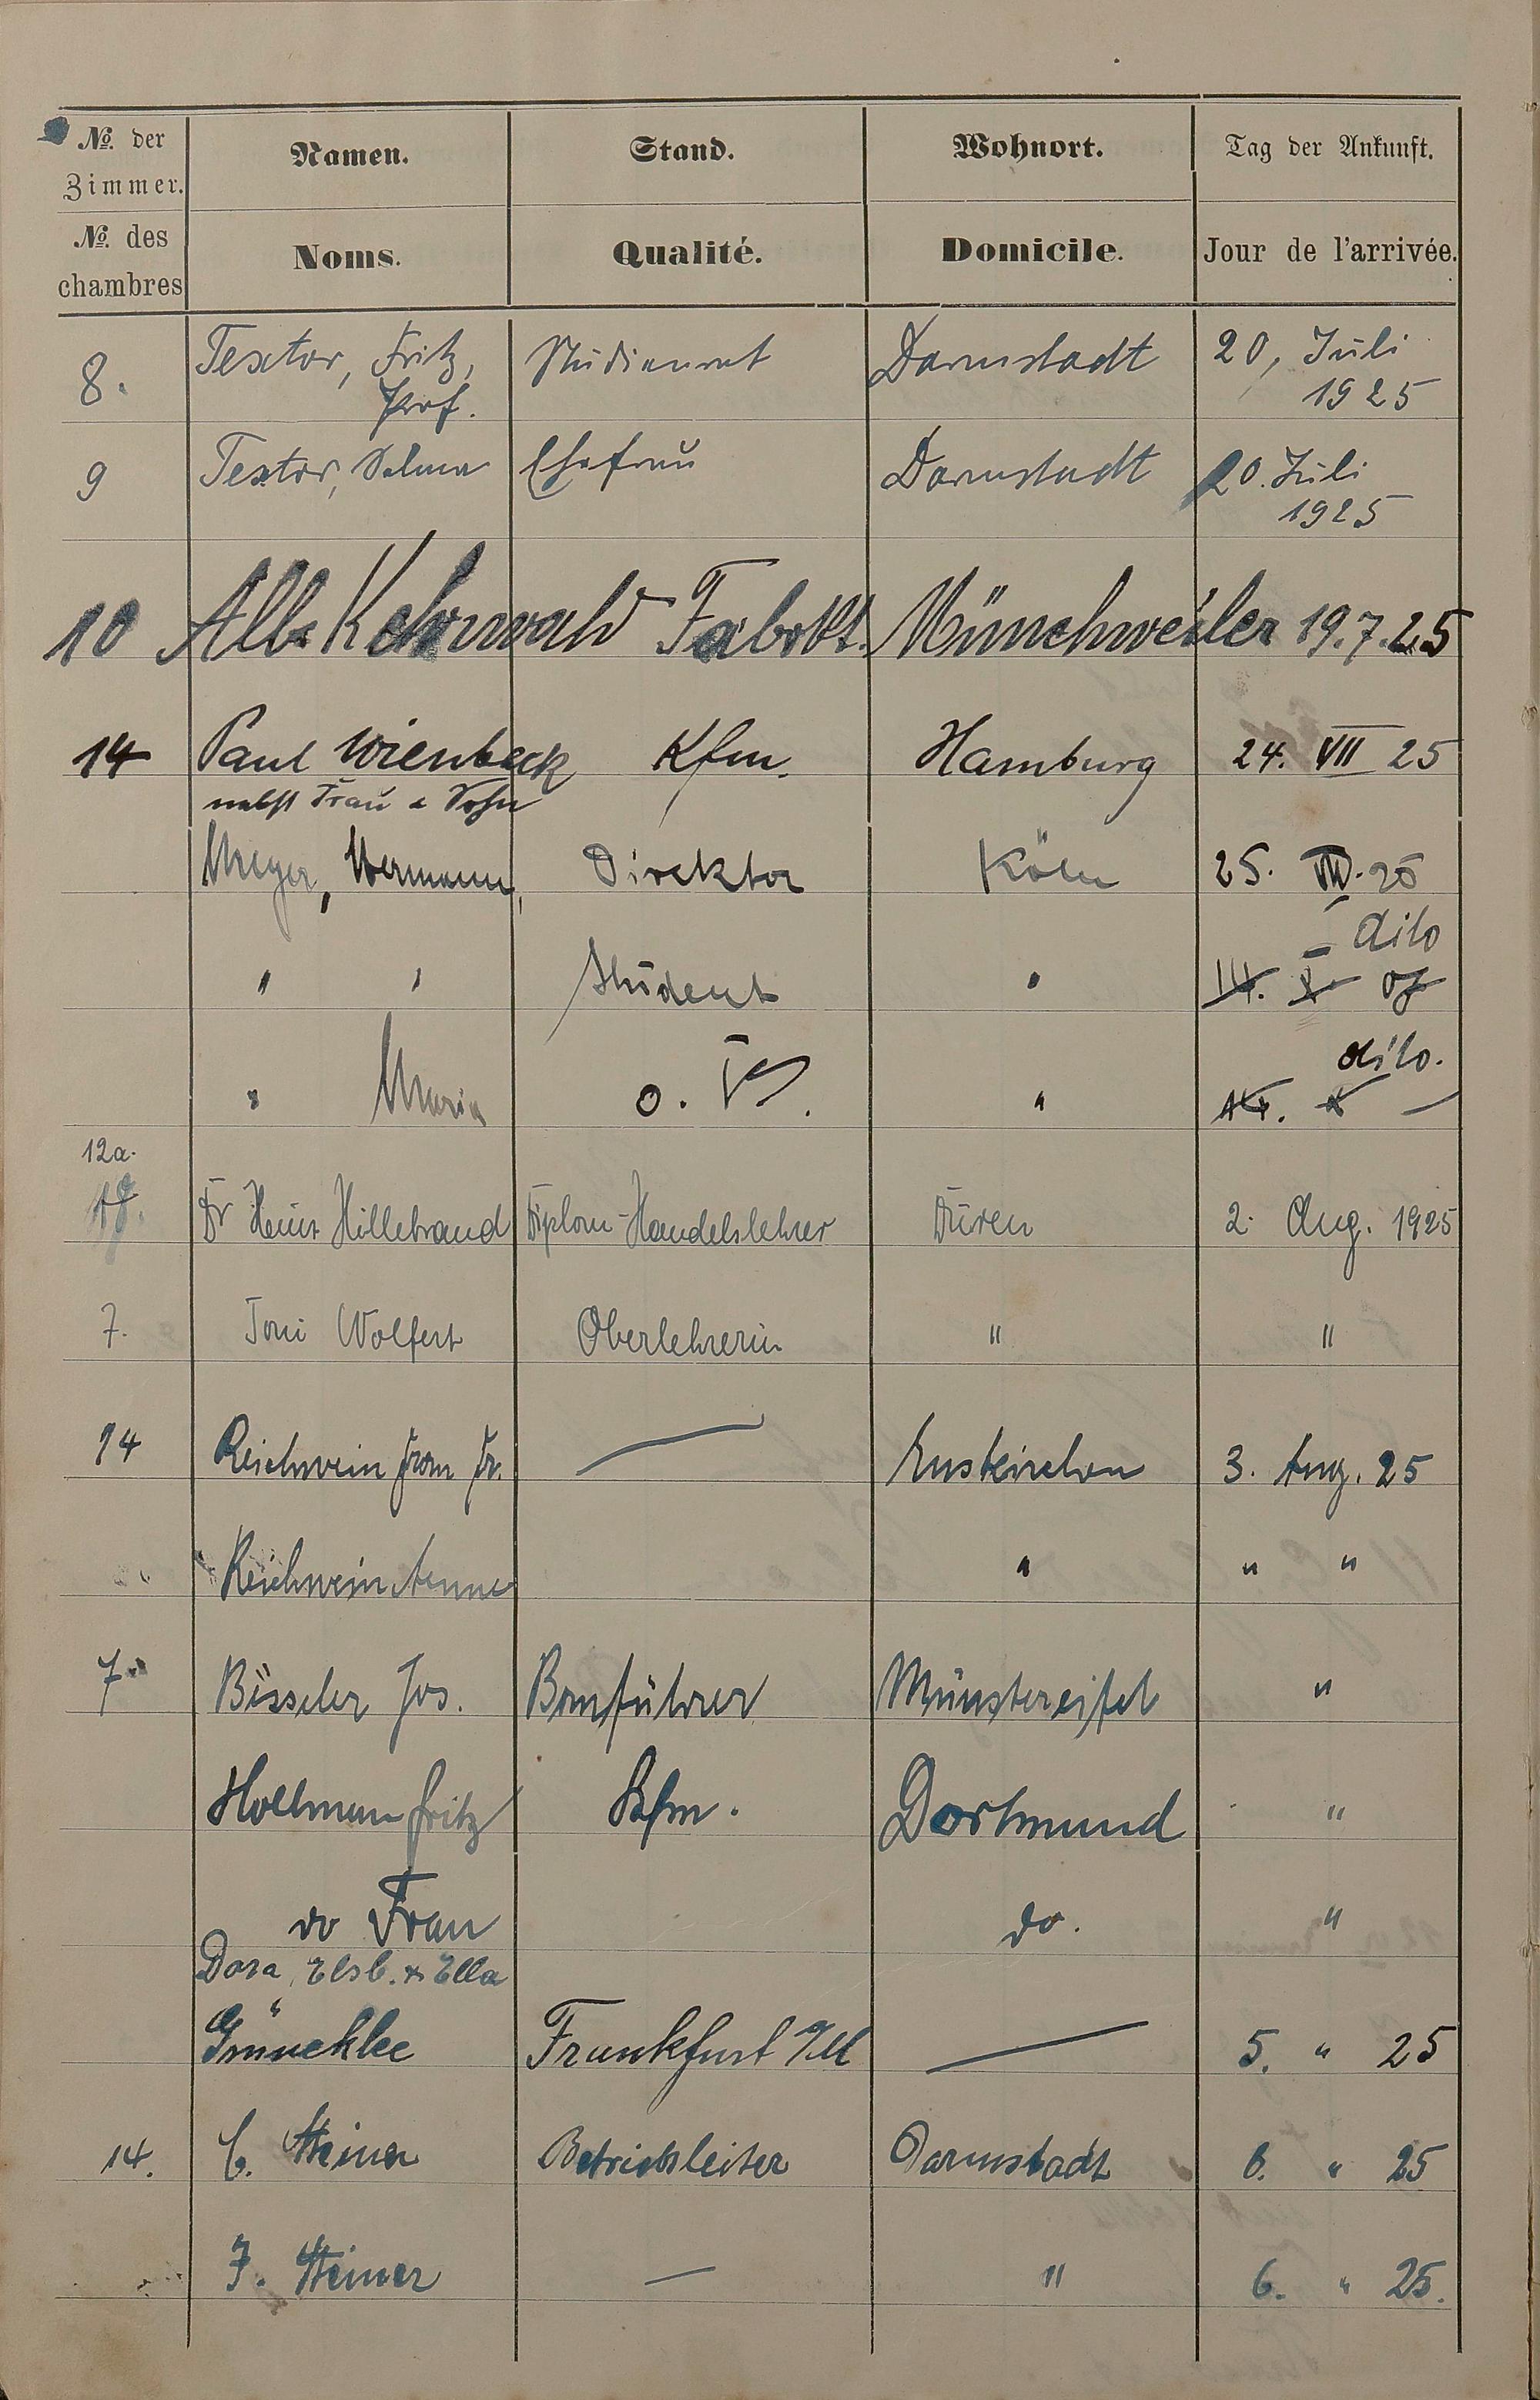 № der Zimmer. Namen. Stand. Wohnort. Tag der Ankunft.
№ des chambres Noms. Qualité. Domicile. Jour de l'arrivée.
8. Textor, Fritz, Prof. Studienrat Darmstadt 20, Juli 1925
9 Textor, Selma Ehefrau Darmstadt 20. Juli 1925
10 Alb. Kehrwald Fabrkt. Münchweiler 19.7.25
14 Paul Wienbeck Kfm. Hamburg 24. VII 25
nebst Frau & Sohn
Meyer, Hermann, Direktor Köln 25. VII. 25
" " Student " – dito
" Maria o. " dito.
12a.
Dr Heinr Hillebrand Diplom-Handelslehrer Düren 2. Aug. 1925
7. Toni Wolfert Oberlehrerin " "
14 Reichwein Frau Dr. — Euskirchen 3. Aug. 25
Reichwein Anne " " "
7 Bisseler Jos. Bauführer Münstereifel "
Hollmann Fritz Kfm. Dortmund "
do Frau do. "
Dora, Elsb. & Ella
Grüneklee Frankfurt a/M — 5. " 25
14. C. Steiner Betriebsleiter Darmstadt 6. " 25
F. Steiner — " 6. " 25.